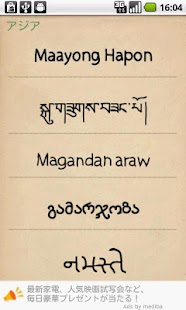 16:04
アジア
Maayong Hapon
སྐུ་གཟུགས་བཟང་པོ།
Magandan araw
გამარჯობა
નમસ્તે
最新家電、人気映画試写会など、
毎日豪華プレゼントが当たる!
Ads by mediba